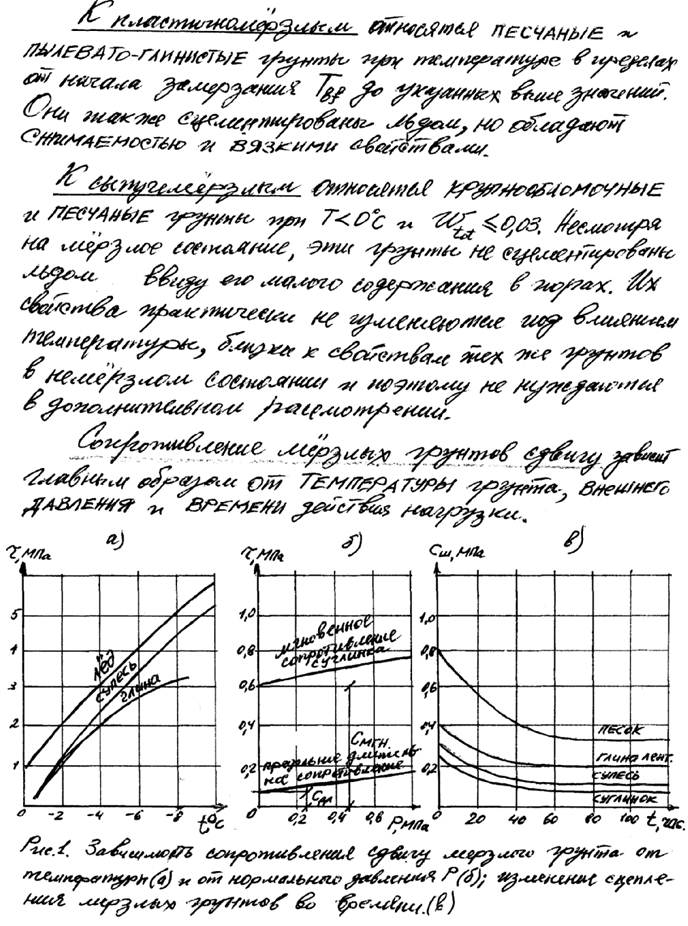 К пластичномёрзлым относятся ПЕСЧАНЫЕ и
ПЫЛЕВАТО-ГЛИНИСТЫЕ грунты при температуре в пределах
от начала замерзания Tbf до указанных выше значений.
Они также сцементированы льдом, но обладают
СЖИМАЕМОСТЬЮ и ВЯЗКИМИ свойствами.
К сыпучемёрзлым относятся КРУПНООБЛОМОЧНЫЕ
и ПЕСЧАНЫЕ грунты при T<0°C и Wtot ≤0,03. Несмотря
на мёрзлое состояние, эти грунты не сцементированы
льдом ввиду его малого содержания в порах. Их
свойства практически не изменяются под влиянием
температуры, близки к свойствам тех же грунтов
в немёрзлом состоянии и поэтому не нуждаются
в дополнительном рассмотрении.
Сопротивление мёрзлых грунтов сдвигу зависит
главным образом от ТЕМПЕРАТУРЫ грунта, ВНЕШНЕГО
ДАВЛЕНИЯ и ВРЕМЕНИ действия нагрузки.
а) б) в)
τ, МПа
5
4
3
2
1
лёд
супесь
глина
-2 -4 -6 -8 t,°C
τ, МПа
1,0
0,8
0,6
0,4
0,2
мгновенное
сопротивление
суглинка
Cмгн.
предельно длитель-
ное сопротивление
Cдл
0,2 0,4 0,6 P, МПа
Cш, МПа
1,0
0,8
0,6
0,4
0,2
ПЕСОК
ГЛИНА ЛЕНТ.
СУПЕСЬ
СУГЛИНОК
0 20 40 60 80 100 t, час.
Рис.1. Зависимость сопротивления сдвигу мерзлого грунта от
температуры (а) и от нормального давления P (б); изменение сцепле-
ния мерзлых грунтов во времени. (в)